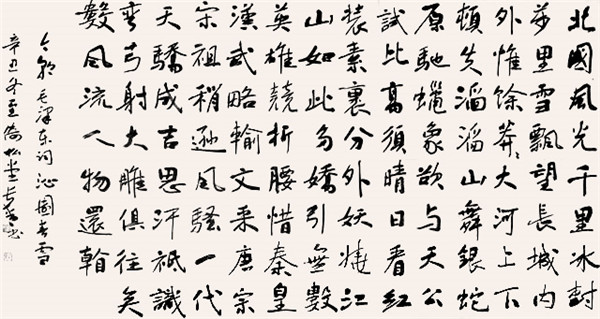 北國風光千里冰封
萬里雪飄望長城内
外惟餘莽々大河上下
頓失滔滔山舞銀蛇
原馳蠟象欲与天公
試比高須晴日看红
装素裹分外妖娆江
山如此多嬌引無數
英雄競折腰惜秦皇
漢武略輸文采唐宗
宋祖稍遜風騷一代
天驕成吉思汗祗識
彎弓射大雕俱往矣
數風流人物還看
今朝毛澤東詞沁園春雪
辛丑冬至